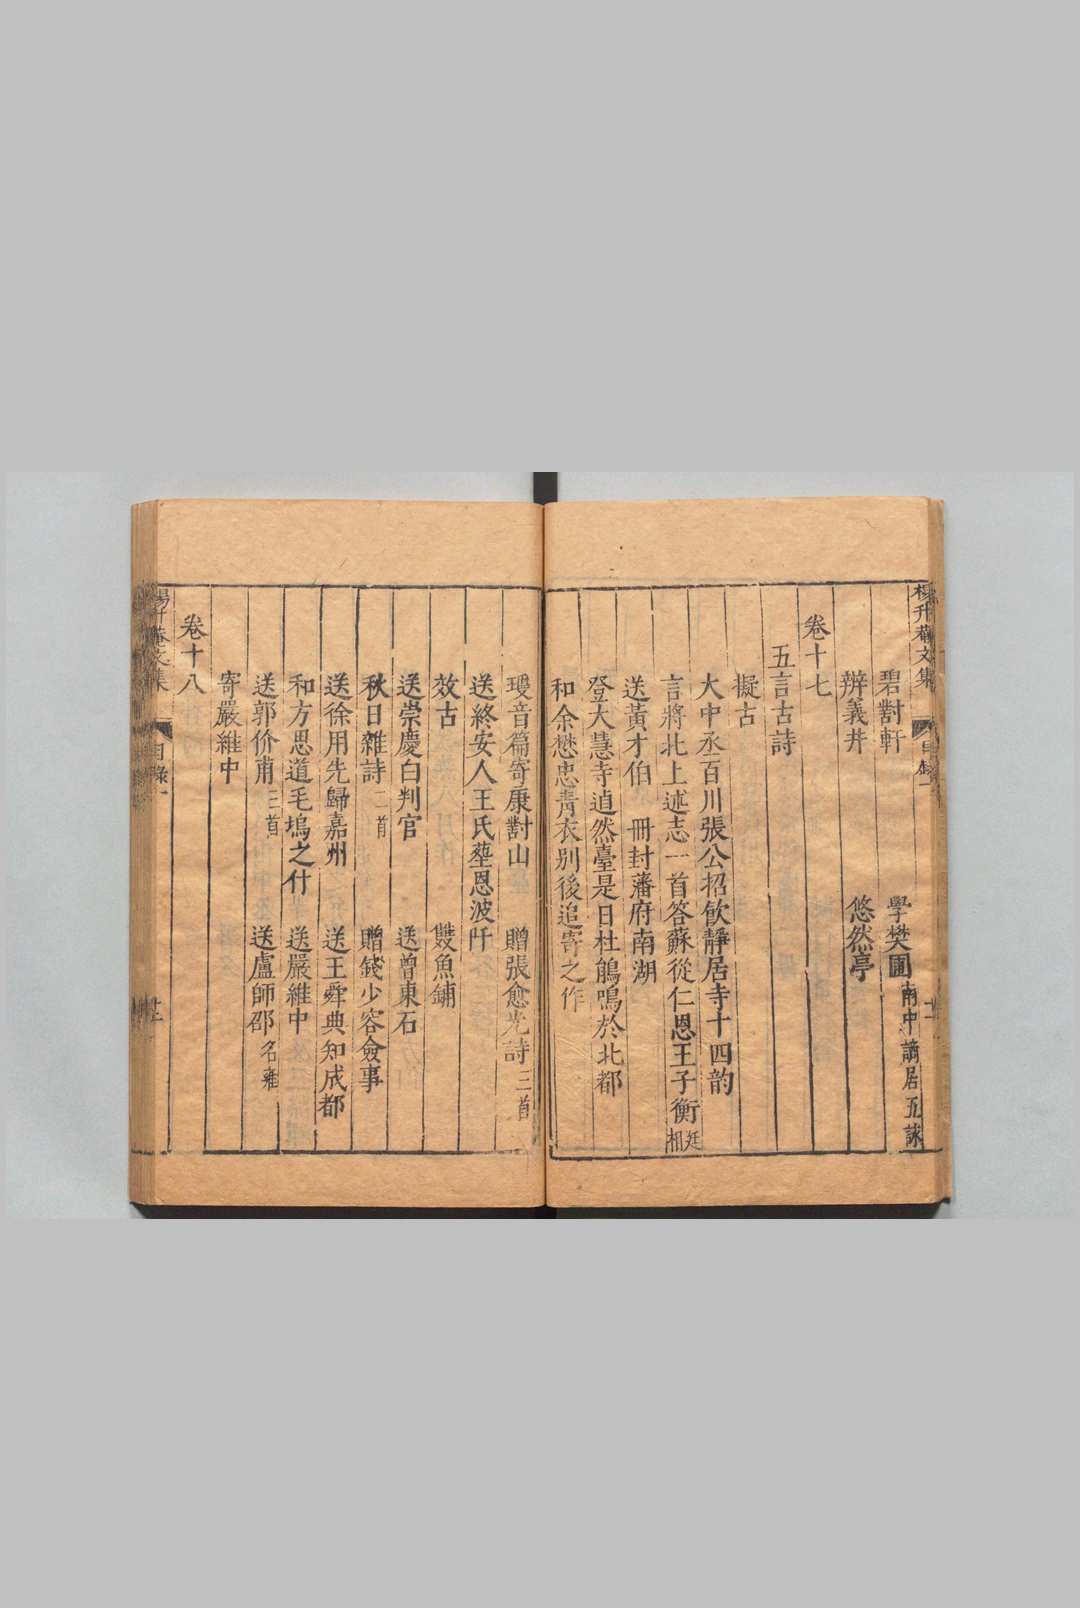 楊升菴文集 目錄一 十二
碧對軒 學樊圃 南中謫居五詠
辯義井 悠然亭
卷十七
五言古詩
擬古
大中丞百川張公招飲靜居寺十四韵
言將北上述志一首答蘇從仁恩王子衡 廷相
送黃才伯 冊封藩府南湖
登大慧寺逌然臺是日杜鵑鳴於北都
和余懋忠青衣别後追寄之作
璦音篇寄康對山 贈張愈光詩 三首
送終安人王氏塟恩波阡
效古 雙魚鋪
送崇慶白判官 送曾東石
秋日雜詩 二首 贈錢少容僉事
送徐用先歸嘉州 送王舜典知成都
和方思道毛塢之什 送嚴維中
送郭价甫 三首 送盧師邵 名雍
寄嚴維中
卷十八
楊升菴文集 目錄一